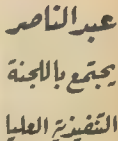 عبد الناصر
يجتمع باللجنة
التنفيذية العليا